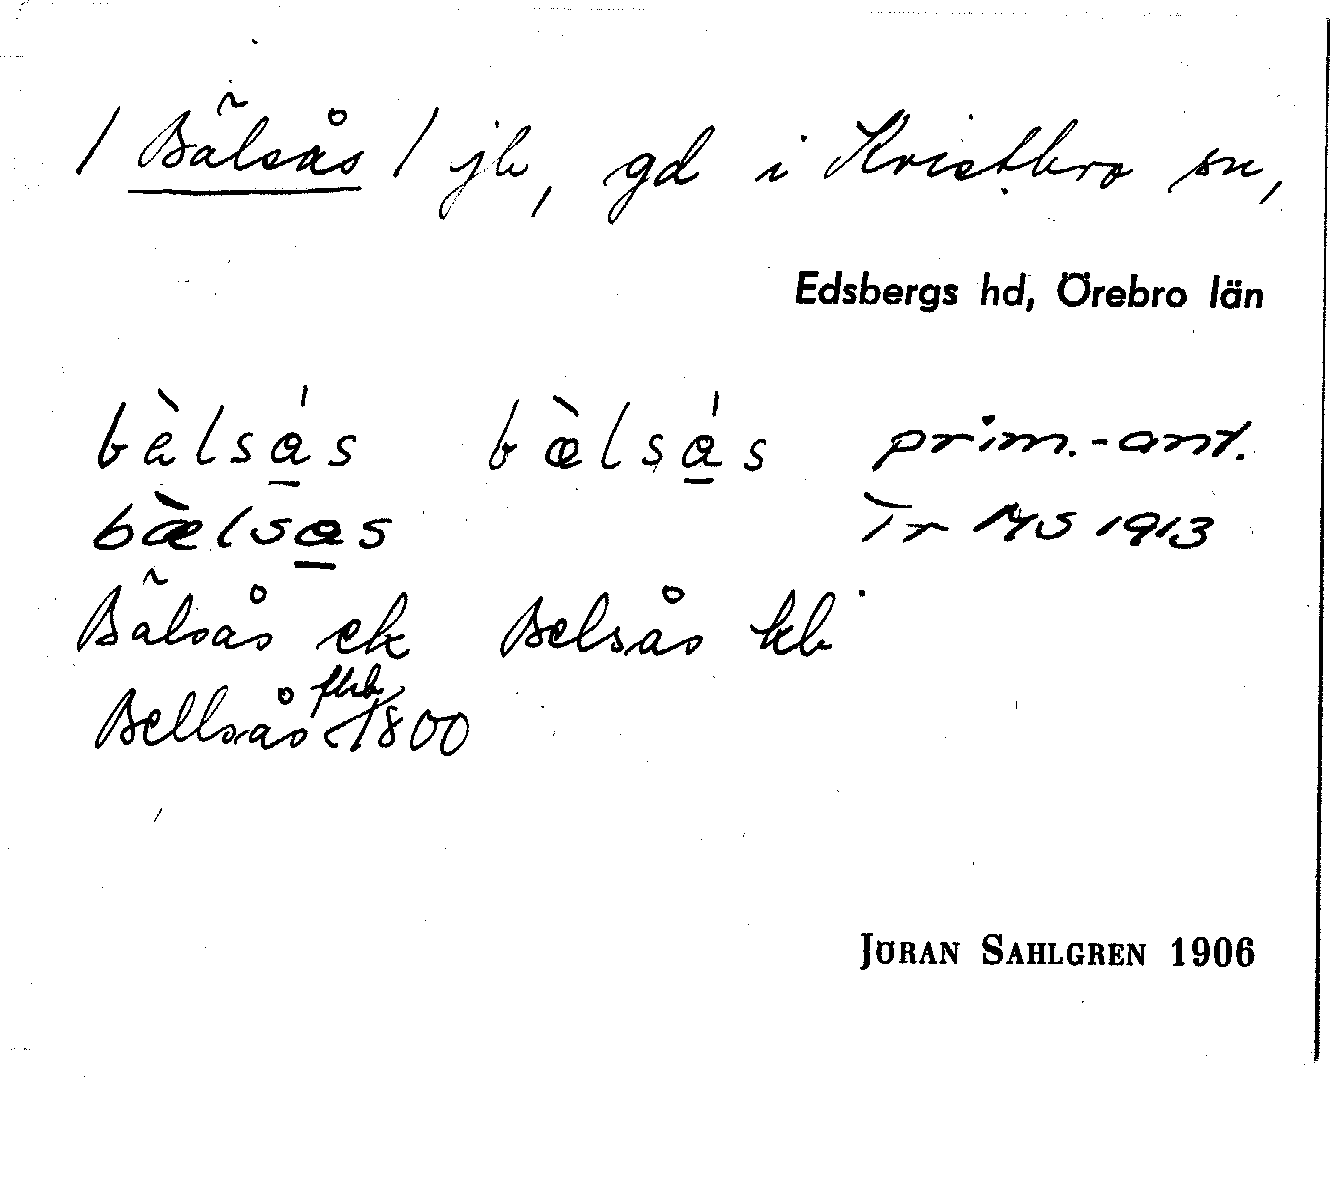 / Bälsås / jb, gd i Kvistbro sn,
Edsbergs hd, Örebro län
bàlsá̲s bæ̀lsá̲s prim.-ant.
bæ̀lsa̲s Tr MS 1913
Bälsås ek Belsås kb
Bellsås flsb 1800
JÖRAN SAHLGREN 1906